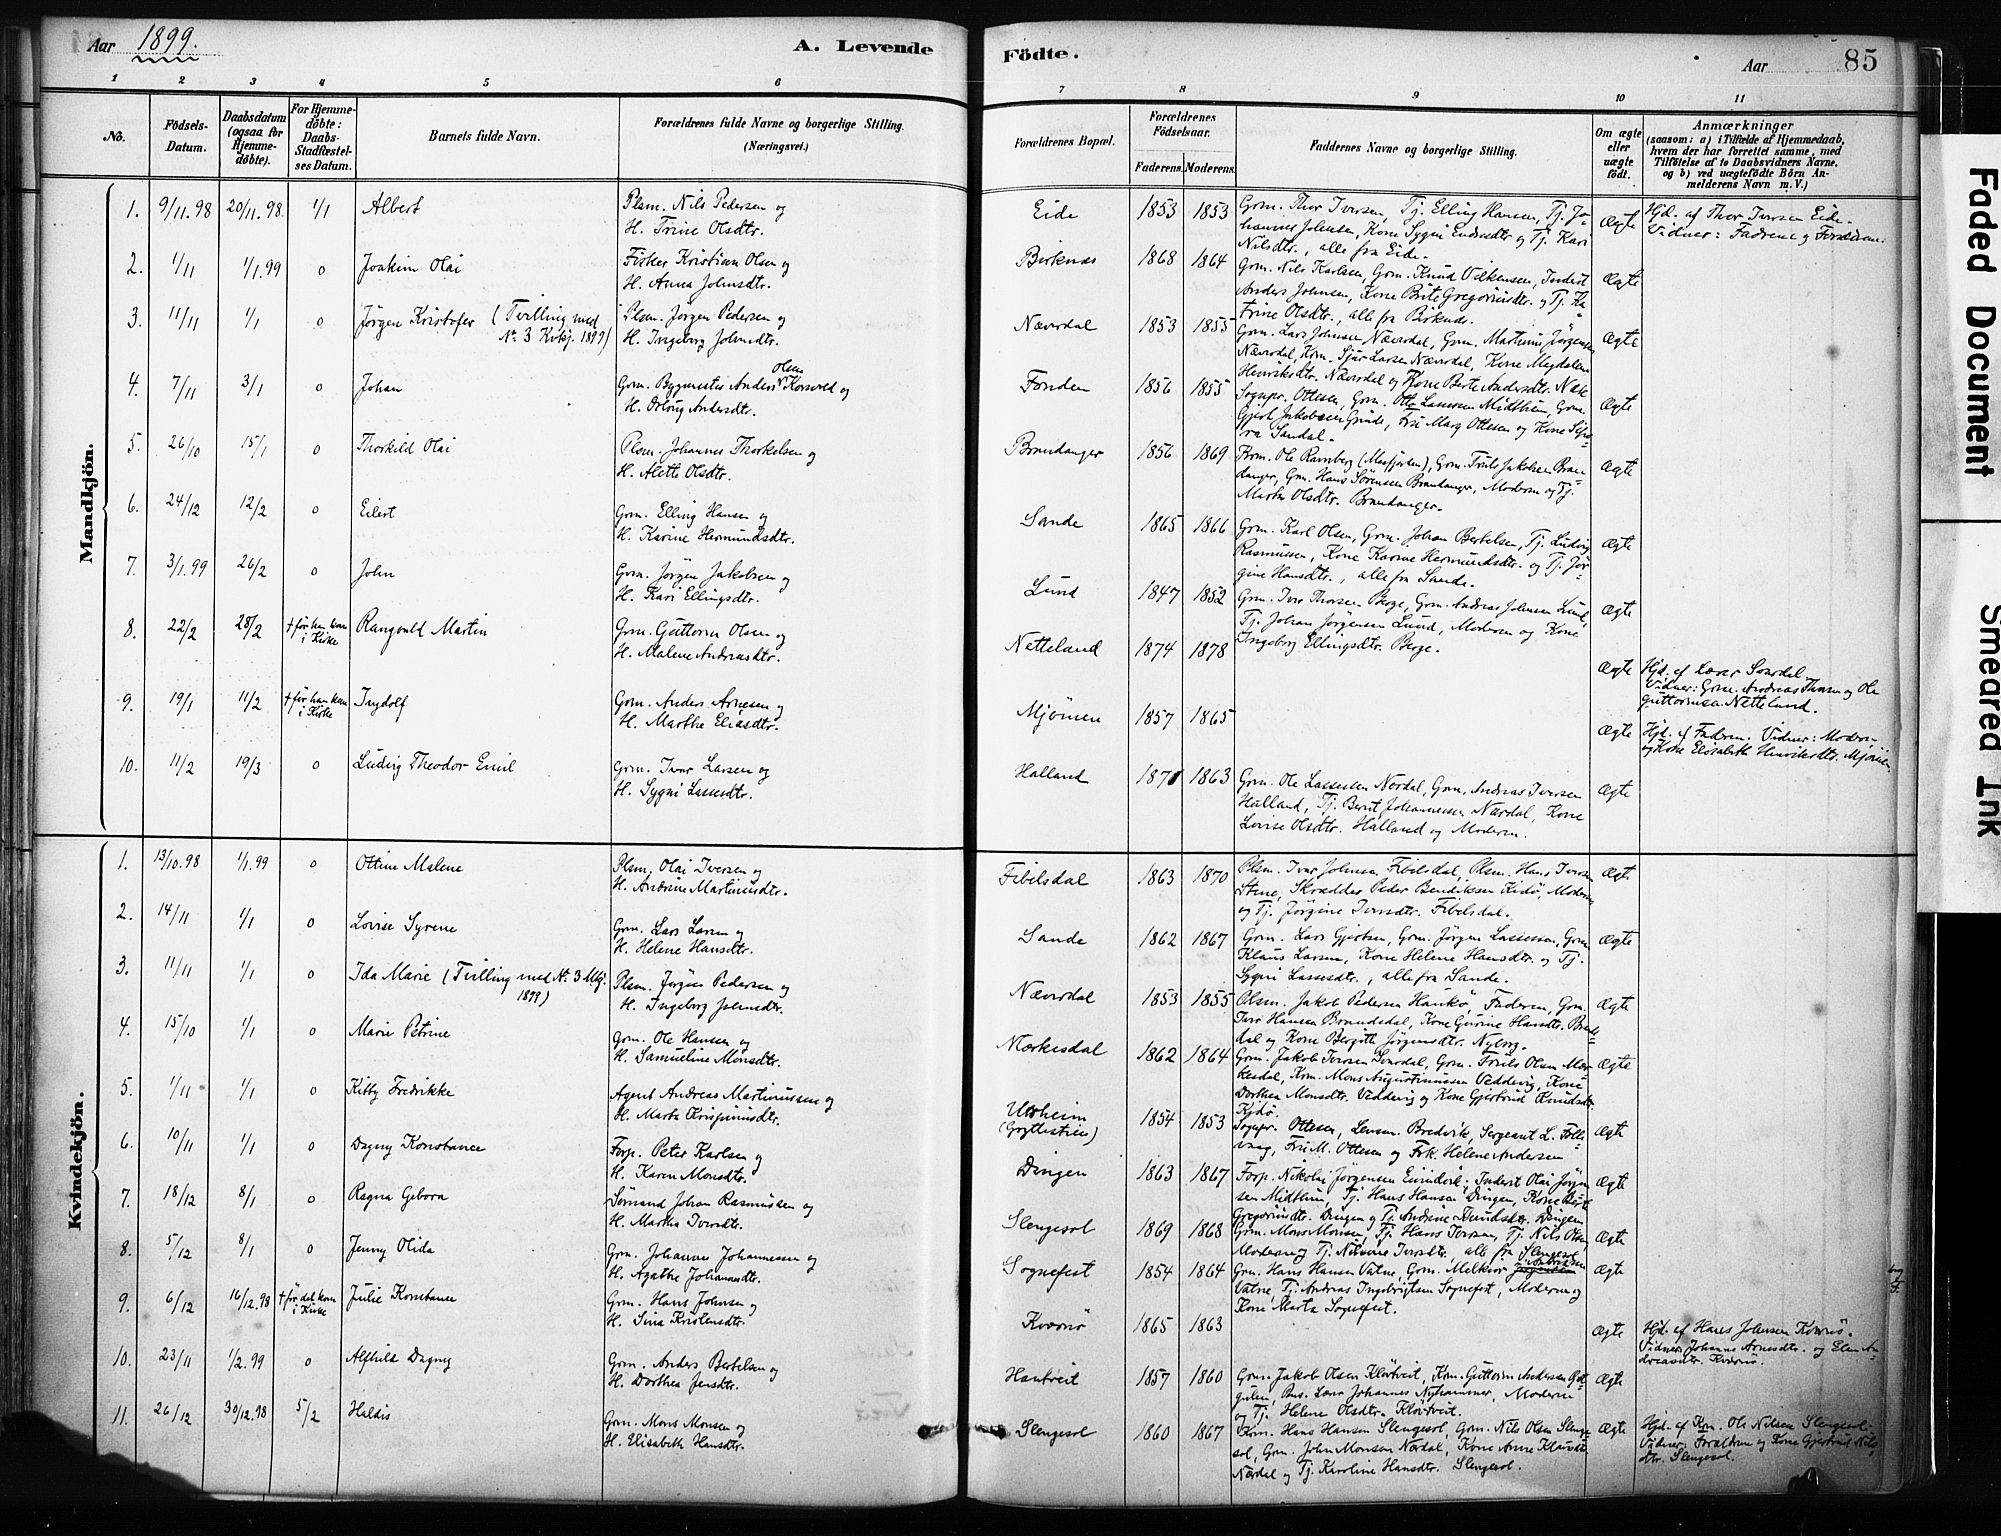 Aar 1899.
A. Levende
Födte.
Aar
85
1 2 3 4 5 6 7 8 9 10 11
No.
Födsels-
Datum.
Daabsdatum
(ogsaa for
Hjemme-
döbte).
For Hjemme-
döbte:
Daabs-
Stadfæstel-
ses Datum.
Barnets fulde Navn.
Forældrenes fulde Navne og borgerlige Stilling.
(Næringsvei.)
Forældrenes Bopæl.
Forældrenes
Födselsaar.
Faderens. Moderens.
Faddernes Navne og borgerlige Stilling.
Om ægte
eller
uægte
födt.
Anmærkninger
(saasom: a) i Tilfælde af Hjemmedaab,
hvem der har forrettet samme, med
Tilföielse af to Daabsvidners Navne,
og b) ved uægtefödte Börn An-
melderens Navn m. V.)
Mandkjön.
1. 9/11.98 20/11.98 1/1 Albert Plsm. Nils Pedersen og
H. Trine Olsdtr.
Eide 1853 1853 Grm. Thor Iversen, Tj. Elling Hansen, Tj. Jo-
hannes Johnsen, Kone Sygni Endresdtr. og Tj. Kari
Nilsdtr., alle fra Eide.
Ægte Hjd. af Thor Iversen Eide.
Vidner: Fadrene og Forældrene.
2. 1/11 1/1.99 0 Joakim Olai Fisker Kristian Olsen og
H. Anna Johnsdtr.
Birknes 1868 1864 Grm. Nils Karlsen, Grm. Knud Villumsen, Inderst
Anders Johnsen, Kone Brite Gregoriusdtr. og Tj. Ka-
trine Olsdtr., alle fra Birknes.
Ægte
3. 11/11 1/1 0 Jörgen Kristofer (Tvilling med
No. 3 Kvkj. 1899)
Plsm. Jörgen Pedersen og
H. Ingeborg Johnsdtr.
Nævrdal 1853 1855 Grm. Lars Johnsen Nævrdal, Grm. Martinus Jörgensen
Nævrdal, Krm. Sjur Larsen Nævrdal, Kone Magdalena
Henriksdtr. Nævrdal og Kone Berte Andersdtr.
Ægte
4. 7/11 3/1 0 Johan Grm. Bygmester Anders Olsen Korsvold og
H. Orlaug Andersdtr.
Fonden 1856 1855 Sognpr. Ottesen, Grm. Otto Lassesen Midthun, Grm.
Gjert Jakobsen Grinde, Fru Marg Ottesen og Kone
Sandal.
Ægte
5. 26/10 15/1 0 Thorkild Olai Plsm. Johannes Thorkelsen og
H. Alette Olsdtr.
Brandanger 1856 1869 Krm. Ole Ramberg (Masfjorden), Grm. Truls Jakobsen Bran-
danger, Grm. Hans Sörensen Brandanger, Moderen og Tj.
Marta Olsdtr. Brandanger.
Ægte
6. 24/12 12/2 0 Eilert Grm. Elling Hansen og
H. Karine Hermundsdtr.
Sande 1865 1866 Grm. Karl Olsen, Grm. Johan Bertelsen, Tj. Ludvig
Rasmussen, Kone Karine Hermundsdtr. og Tj. Jör-
gine Hansdtr., alle fra Sande.
Ægte
7. 3/1.99 26/2 0 John Grm. Jörgen Jakobsen og
H. Kari Ellingsdtr.
Lund 1847 1852 Grm. Iver Thorsen Berge, Grm. Andreas Johnsen Lund,
Tj. Johan Jörgensen Lund, Moderen og Kone
Ingeborg Ellingsdtr. Berge.
Ægte
8. 22/2 28/2 † för han kom
i Kirke
Rangvald Martin Grm. Guttorm Olsen og
H. Malene Andreasdtr.
Netteland 1874 1878 Ægte Hjd. af Lærer Sördal
Vidner: Grm. Andreas Thoresen og Ole
Guttormsen Netteland.
9. 19/1 11/2 † för han kom
i Kirke
Ingdolf Grm. Anders Arnesen og
H. Marthe Eliasdtr.
Mjömen 1857 1865 Ægte Hjd. af Faderen. Vidner: Moderen
og Kone Elisabeth Henriksdtr. Mjömen.
10. 11/2 19/3 0 Ludvig Theodor Emil Grm. Ivar Larsen og
H. Sygni Lassesdtr.
Halland 1871 1863 Grm. Ole Lassesen Nordal, Grm. Andreas Iversen
Halland, Tj. Bernt Johannessen Nævrdal, Kone
Lovise Olsdtr. Halland og Moderen.
Ægte
Kvindekjön.
1. 13/10.98 1/1.99 0 Ottine Malene Plsm. Olai Iversen og
H. Andrine Martinusdtr.
Fibelsdal 1863 1870 Plsm. Ivar Johnsen Fibelsdal, Plsm. Hans Iversen
Stene, Skrædder Peder Bendiksen Eidö, Moderen
og Tj. Jörgine Iversdtr. Fibelsdal.
Ægte
2. 14/11 1/1 0 Lovise Syrene Grm. Lars Larsen og
H. Helene Hansdtr.
Sande 1862 1867 Grm. Lars Gjertsen, Grm. Jörgen Lassesen, Grm.
Klaus Larsen, Kone Helene Hansdtr. og Tj.
Sygni Lassesdtr., alle fra Sande.
Ægte
3. 11/11 1/1 0 Ida Marie (Tvilling med No. 3 Mkj.
1899)
Plsm. Jörgen Pedersen og
H. Ingeborg Johnsdtr.
Nævrdal 1853 1855 Plsm. Jakob Pedersen Haukö, Faderen, Grm.
Iver Hansen Brandsdal, Kone Gurine Hansdtr. Brands-
dal og Kone Bergitte Jörgensdtr. Nyborg.
Ægte
4. 15/10 1/1 0 Marie Petrine Grm. Ole Hansen og
H. Samueline Monsdtr.
Mærkesdal 1862 1864 Grm. Jakob Iversen Sördal, Grm. Truls Olsen Mær-
kesdal, Krm. Mons Augustinussen Veddevig, Kone
Dorthea Monsdtr. Veddevig og Kone Gjertrud Knudsdtr.
Eidö.
Ægte
5. 1/11 1/1 0 Kitty Fredrikke Agent Andreas Martinussen og
H. Marta Krispinusdtr.
Utheim 1854 1853 Sognpr. Ottesen, Lensm. Bredvik, Sergeant L. Folle-
vaag, Fru M. Ottesen og Frk. Helene Andersen
Ægte
6. 10/11 1/1 0 Dagny Konstance Forp. Peter Karlsen og
H. Karen Monsdtr.
Dingen 1863 1867 Forp. Nikolai Jörgensen, Inderst Olai Jörgen-
sen Midthun, Tj. Hans Hansen Dingen, Kone Berte
Gregoriusdtr. Dingen og Tj. Andrine Dingen
Ægte
7. 18/12 8/1 0 Ragna Gebora Sömand Johan Rasmussen og
H. Martha Iversdtr.
Slengesol 1869 1868 Grm. Mons Monsen, Tj. Hans Iversen, Tj. Nils Olsen,
Moderen og Tj. Nilsine Iversdtr. alle fra Slengesol.
Ægte
8. 5/12 8/1 0 Jenny Olida Grm. Johannes Johannessen og
H. Agathe Johannesdtr.
Sognefest 1854 1864 Grm. Hans Hansen Vatne, Grm. Melkior
Vatne, Tj. Andreas Ingebrigtsen Sognefest, Moderen og
Kone Marta Sognefest.
Ægte
9. 6/12 16/12.98 † för det kom
i Kirke
Julie Konstance Grm. Hans Johnsen og
H. Sina Kristensdtr.
Kversö 1865 1863 Ægte Hjd. af Hans Johnsen Kversö.
Vidner Johanne Arnesdtr. og Elen An-
dreasdtr. Kversö.
10. 23/11 1/2.99 0 Alfhild Dagny Grm. Anders Bertelsen og
H. Dorthea Jensdtr.
Hantveit 1857 1860 Grm. Jakob Olsen Klövtveit, Krm. Guttorm Andersen
Johannes Nyhammer, Moderen
og Tj. Helene Olsdtr. Klövtveit.
Ægte
11. 26/12 30/12.98 5/2 Haldis Grm. Mons Monsen og
H. Elisabeth Hansdtr.
Slengesol 1860 1867 Krm. Hans Hansen Slengesol, Grm. Nils Olsen Slenge-
sol, Grm. John Monsen Nordal, Kone Anne Klausdtr.
Nordal og Tj. Karoline Hansdtr. Slengesol.
Ægte Hjd. af Krm. Ole Nilsen Slengesol.
Vidner: Forældrene og Kone Gjertrud Nils-
dtr. Slengesol.
Faded Document
Smeared Ink